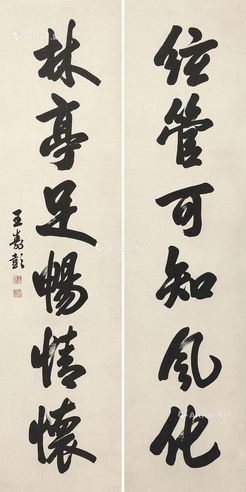 絃管可知風化
林亭足暢情懷
王壽彭